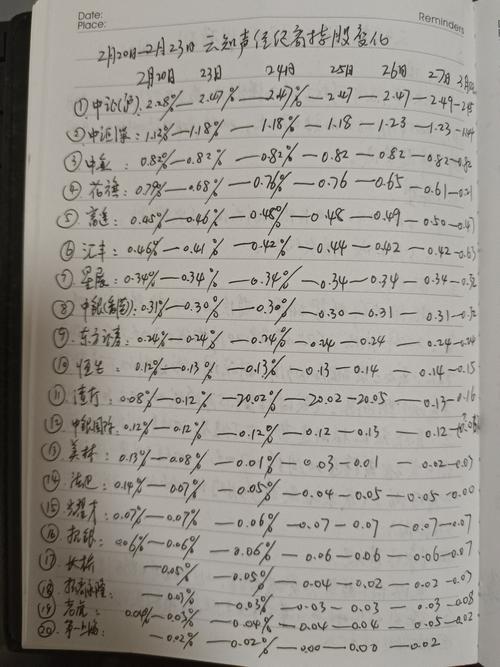 Date:
Place:
Reminders
2月20日-2月23日 云知声经纪商持股变化
2月20日 23日 24日 25日 26日 27日
① 中证(沪). 2.28% - 2.47% - 2.47% - 2.47 - 2.47 - 2.49 -
② 中证深: 1.13% - 1.18% - 1.18% - 1.18 - 1.23 - 1.23 -
③ 中金: 0.82% - 0.82% - 0.82% - 0.82 - 0.82 - 0.82 - 0.82
④ 花旗: 0.79% - 0.68% - 0.76% - 0.76 - 0.65 - 0.61 -
⑤ 高盛: 0.45% - 0.46% - 0.48% - 0.48 - 0.49 - 0.50 - 0.47
⑥ 汇丰: 0.46% - 0.41% - 0.42% - 0.44 - 0.42 - 0.42 -
⑦ 星展: 0.34% - 0.34% - 0.34% - 0.34 - 0.34 - 0.34 -
⑧ 中银(香港): 0.31% - 0.30% - 0.30% - 0.30 - 0.31 - 0.31 -
⑨ 东方证券: 0.24% - 0.24% - 0.24% - 0.24 - 0.24 - 0.24 - 0.24
⑩ 恒生: 0.12% - 0.13% - 0.13% - 0.13 - 0.14 - 0.14 - 0.15
⑪ 渣打: 0.08% - 0.12% - 20.02% - 20.02 - 20.05 - 0.13 - 0.16
⑫ 中银国际: 0.12% - 0.12% - 0.12% - 0.12 - 0.13 - 0.12 -
⑬ 美林: 0.13% - 0.08% - 0.01% - 0.03 - 0.01 - 0.02 - 0.03
⑭ 法巴: 0.14% - 0.07% - 0.05% - 0.04 - 0.05 - 0.05 - 0.00
⑮ 耀才: 0.07% - 0.07% - 0.06% - 0.07 - 0.07 - 0.07 - 0.07
⑯ 招银: 0.06% - 0.06% - 0.06% - 0.06 - 0.06 - 0.06 - 0.07
⑰ 长桥 - 0.05% - 0.05% - 0.04 - 0.02 - 0.02 - 0.03
⑱ 招商永隆: - 0.03% - 0.03% - 0.03 - 0.03 - 0.03 - 0.08
⑲ 0.04% - 0.03% - 0.04% - 0.04 - 0.04 - 0.05 - 0.02
⑳ 第一上海: - 0.02% - 0.02% - 0.00 - 0.00 - 0.02